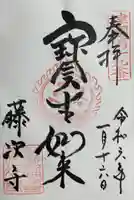 奉拝
宝生如来
令和六年
一月十六日
藤次寺